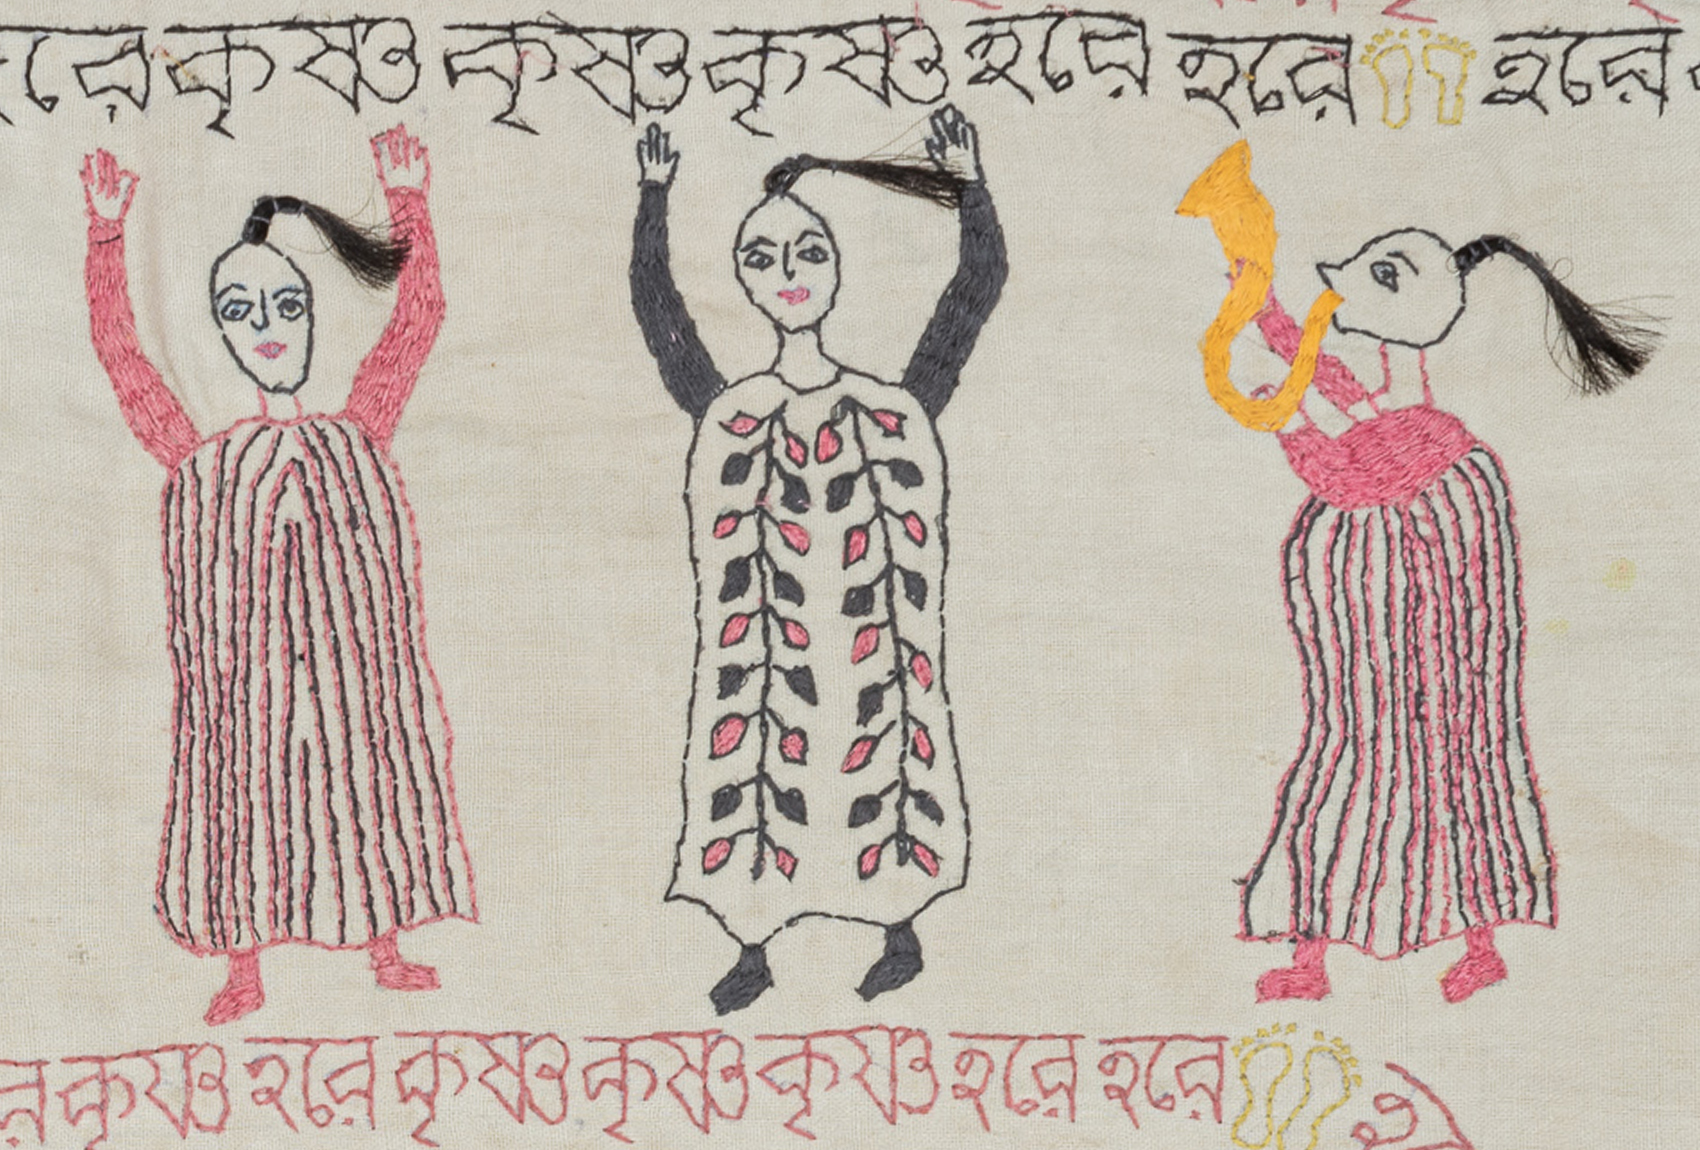 হরে কৃষ্ণ কৃষ্ণ কৃষ্ণ হরে হরে হরে
কৃষ্ণ হরে কৃষ্ণ কৃষ্ণ কৃষ্ণ হরে হরে